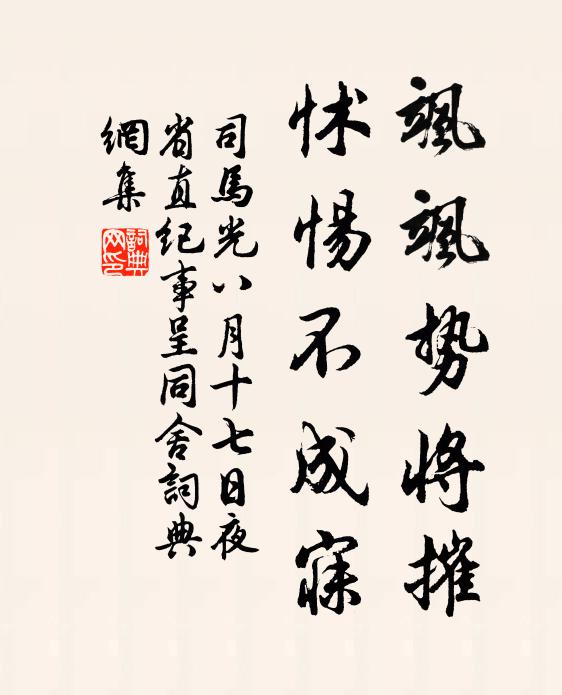 飒飒势将摧
怵惕不成寐
司馬光八月十七日夜
省直纪事呈同舍詞典
網集
詞典
网印